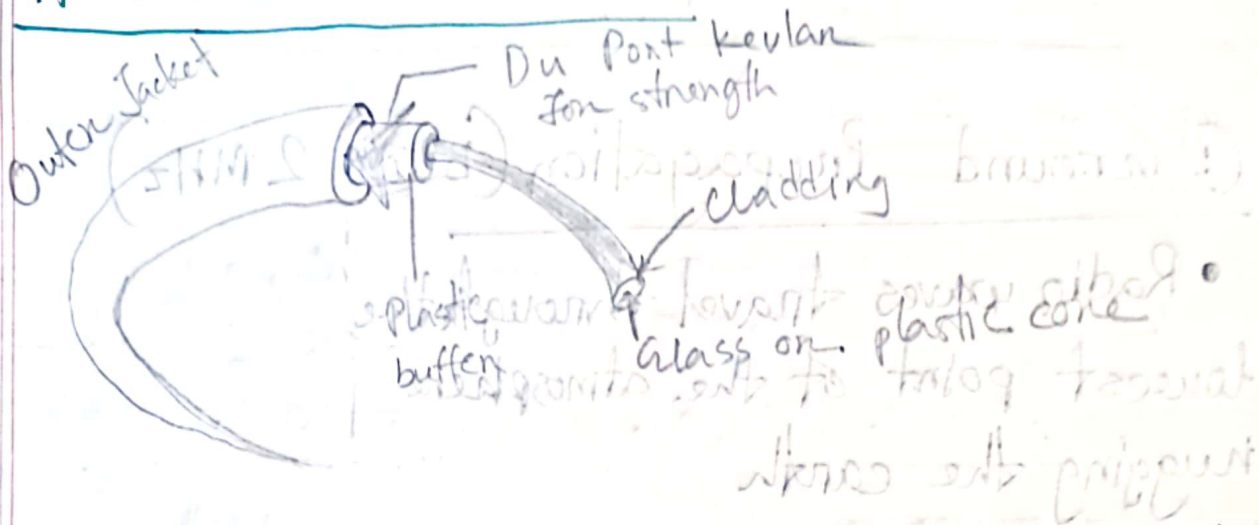 Outer Jacket
Du Pont kevlar
for strength
cladding
plastic
buffer
Glass or plastic core